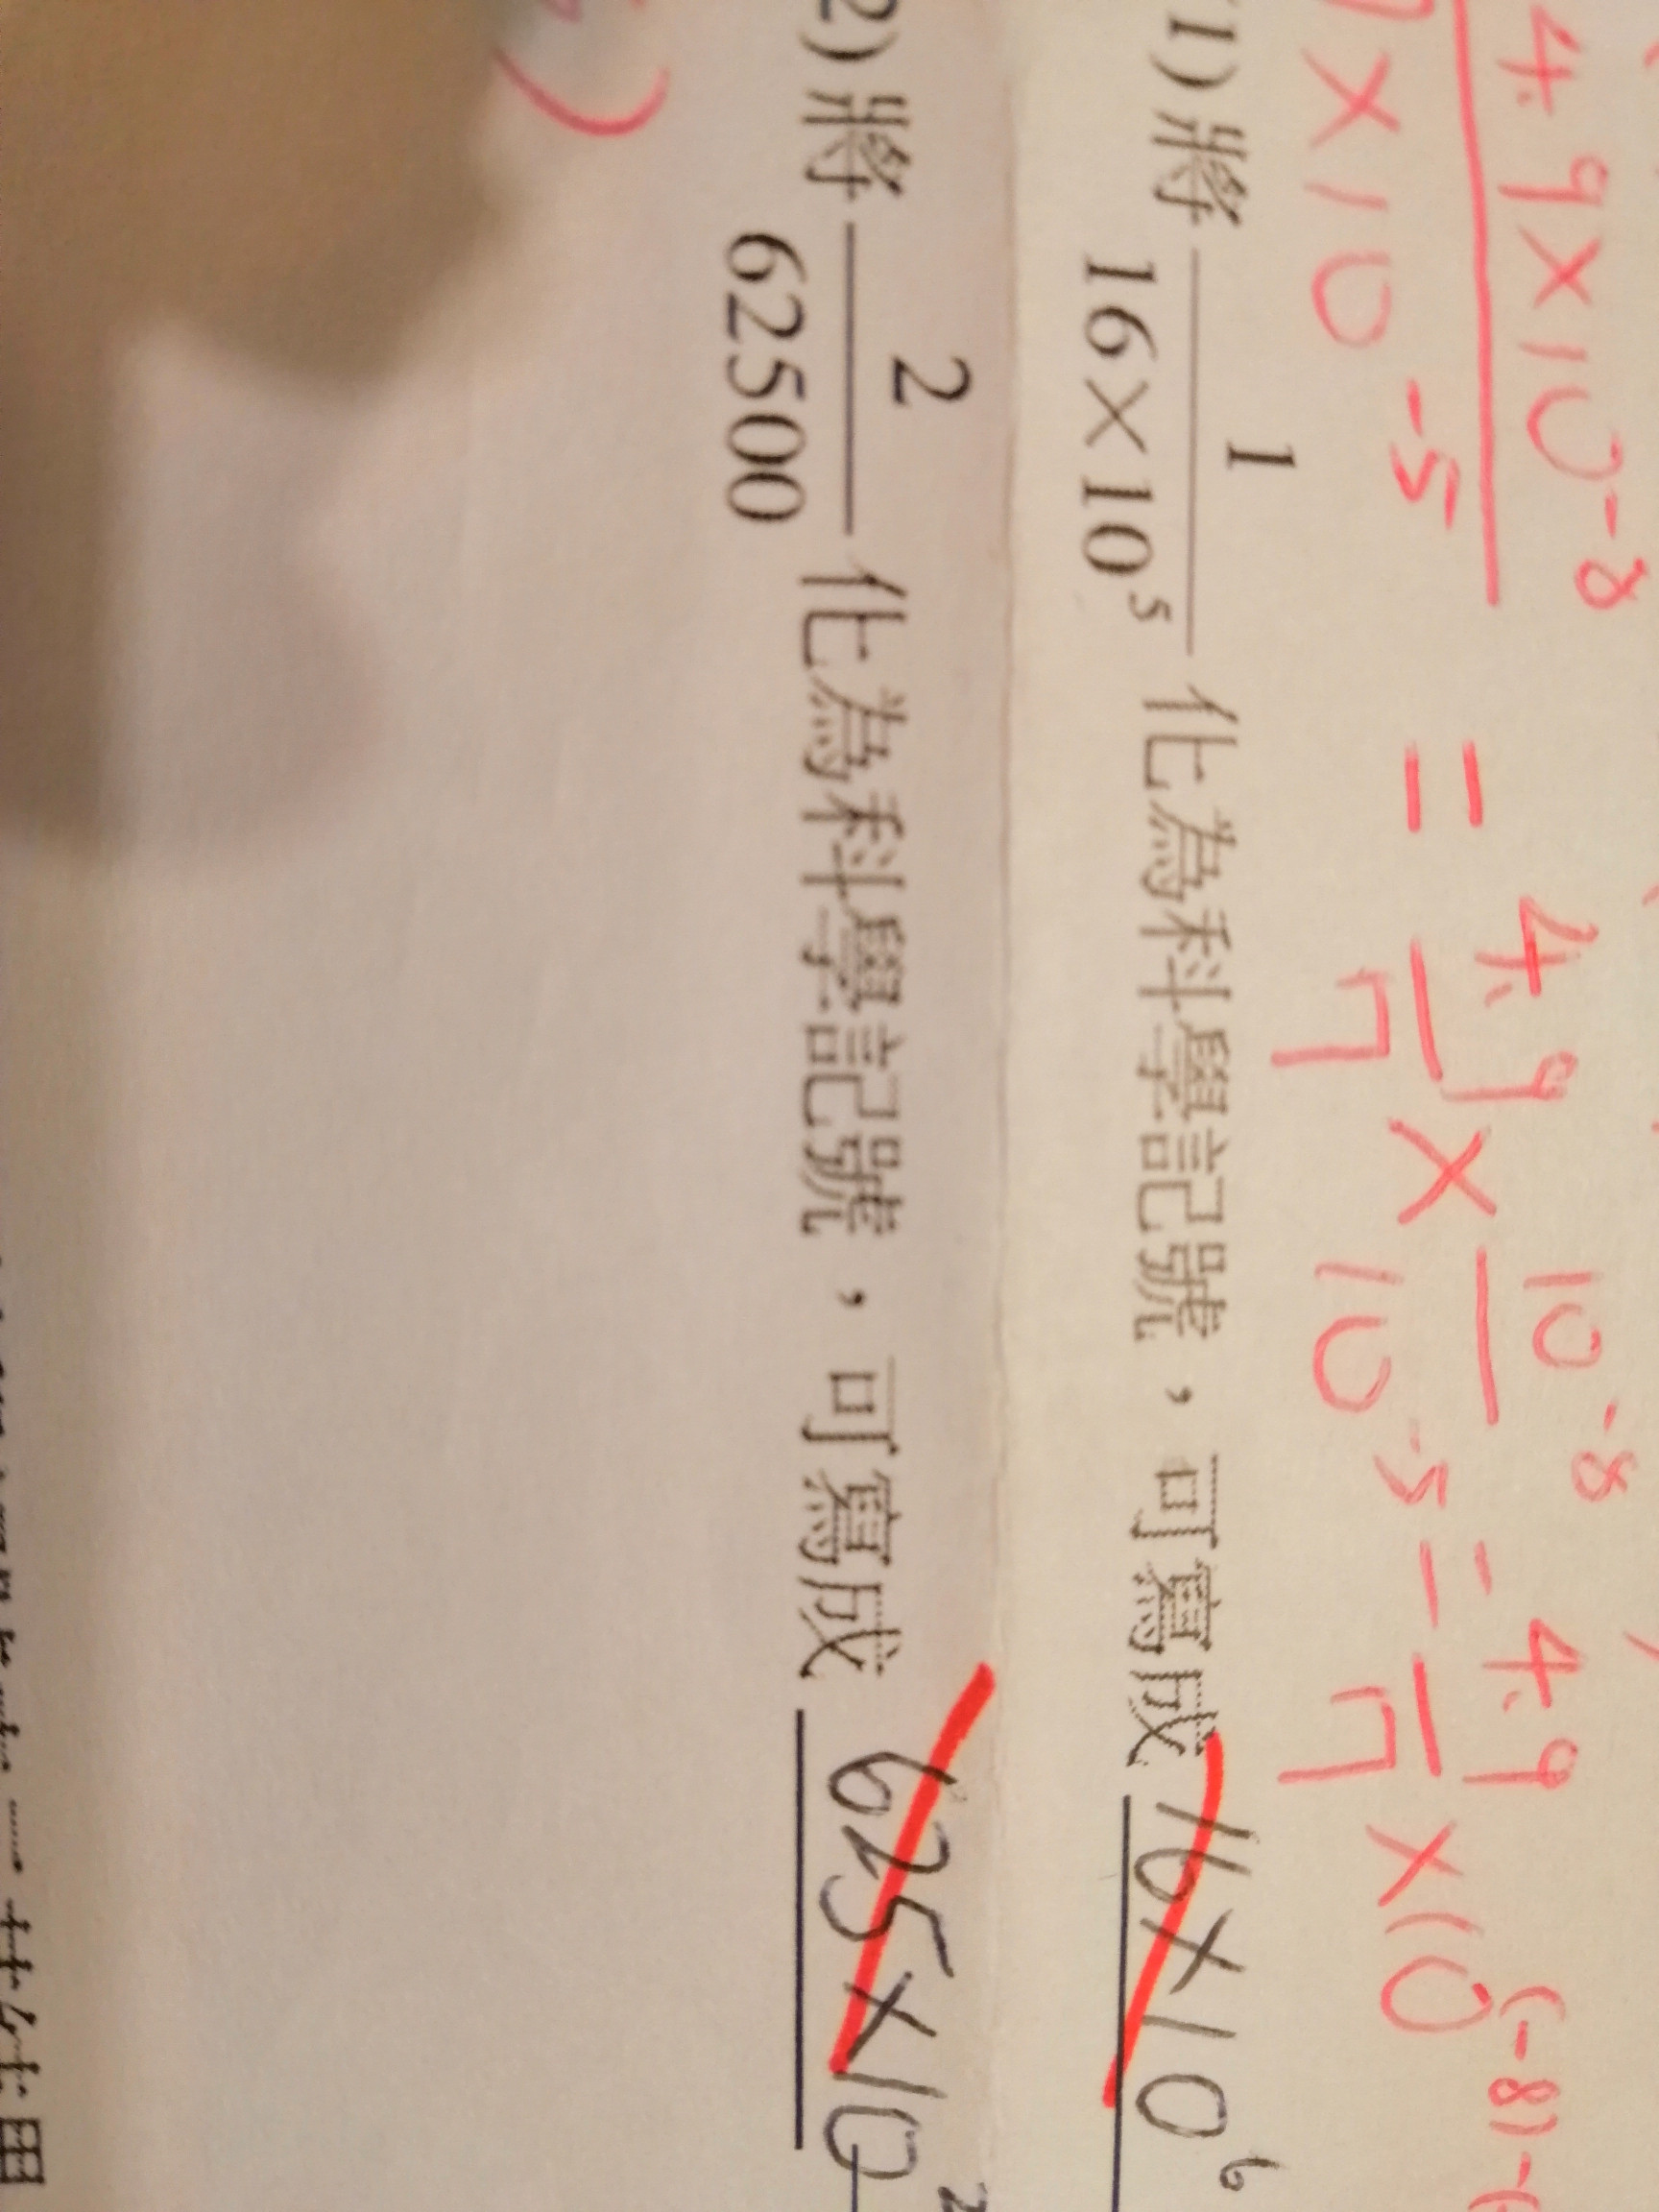 4.9×10⁻⁸/7×10⁻⁵ = 4.9/7 × 10⁻⁸/10⁻⁵ = 4.9/7 ×10
(1) 將 1/16×10⁵ 化為科學記號，可寫成 16×10⁶
2) 將 2/62500 化為科學記號，可寫成 625×10²